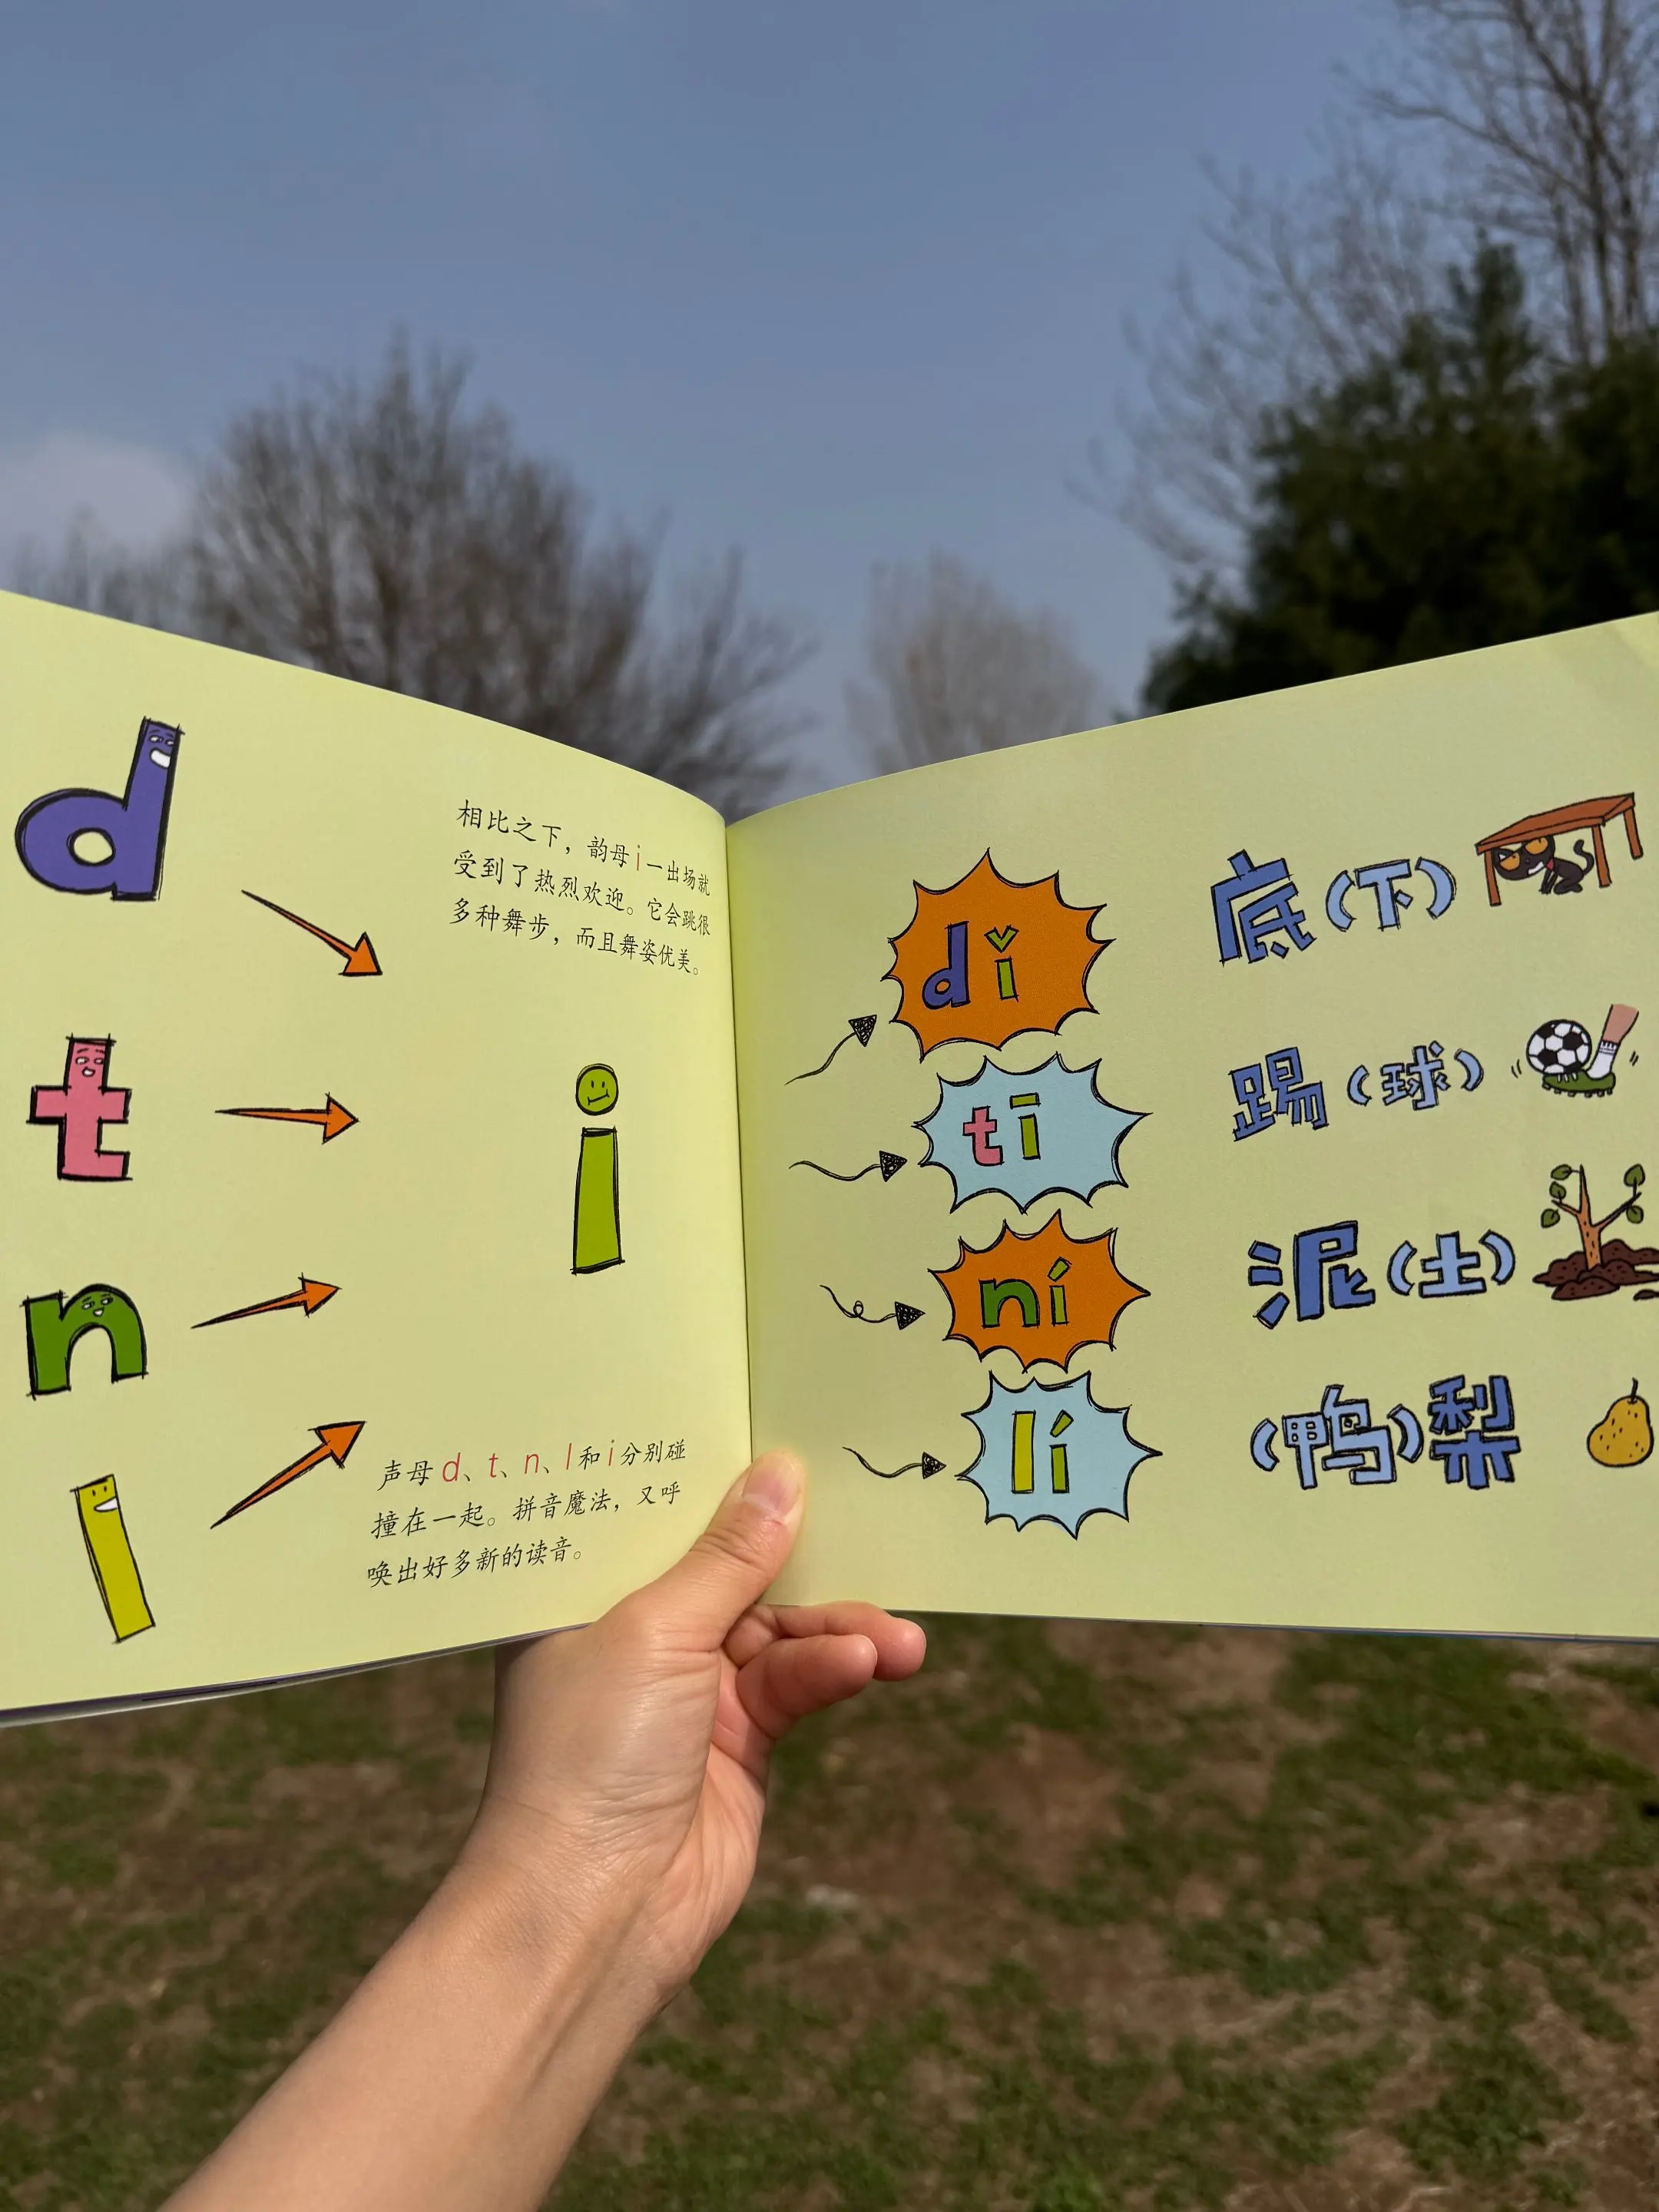 d
t
n
l
相比之下，韵母i一出场就
受到了热烈欢迎。它会跳很
多种舞步，而且舞姿优美。
i
声母d、t、n、l和i分别碰
撞在一起。拼音魔法，又呼
唤出好多新的读音。
dǐ 底（下）
tī 踢（球）
ní 泥（土）
lí （鸭）梨